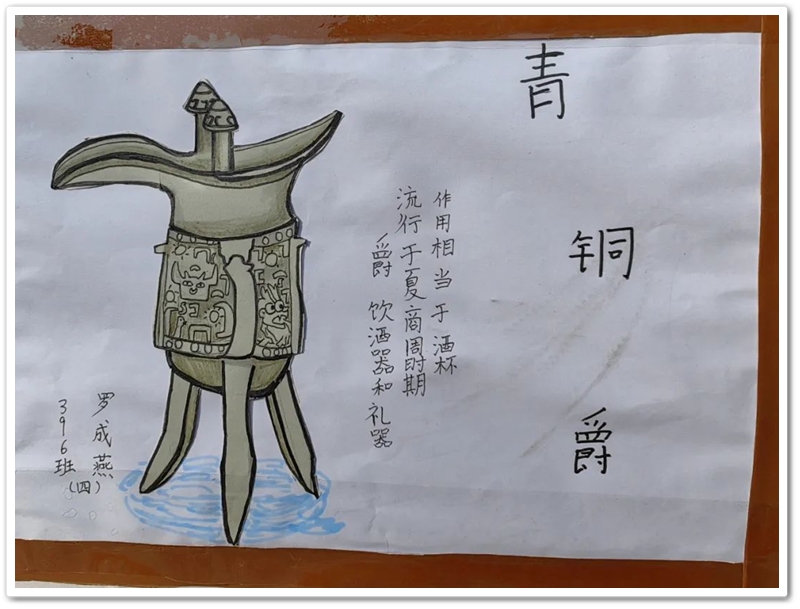 青铜爵
作用相当于酒杯
流行于夏商周时期
爵 饮酒器和礼器
罗成燕
396班(四)